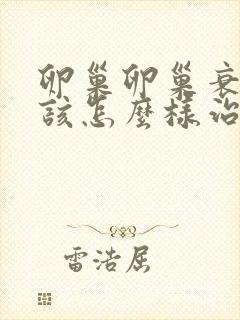 卵巢卵巢衰
该怎麼樣治
雷浩屈